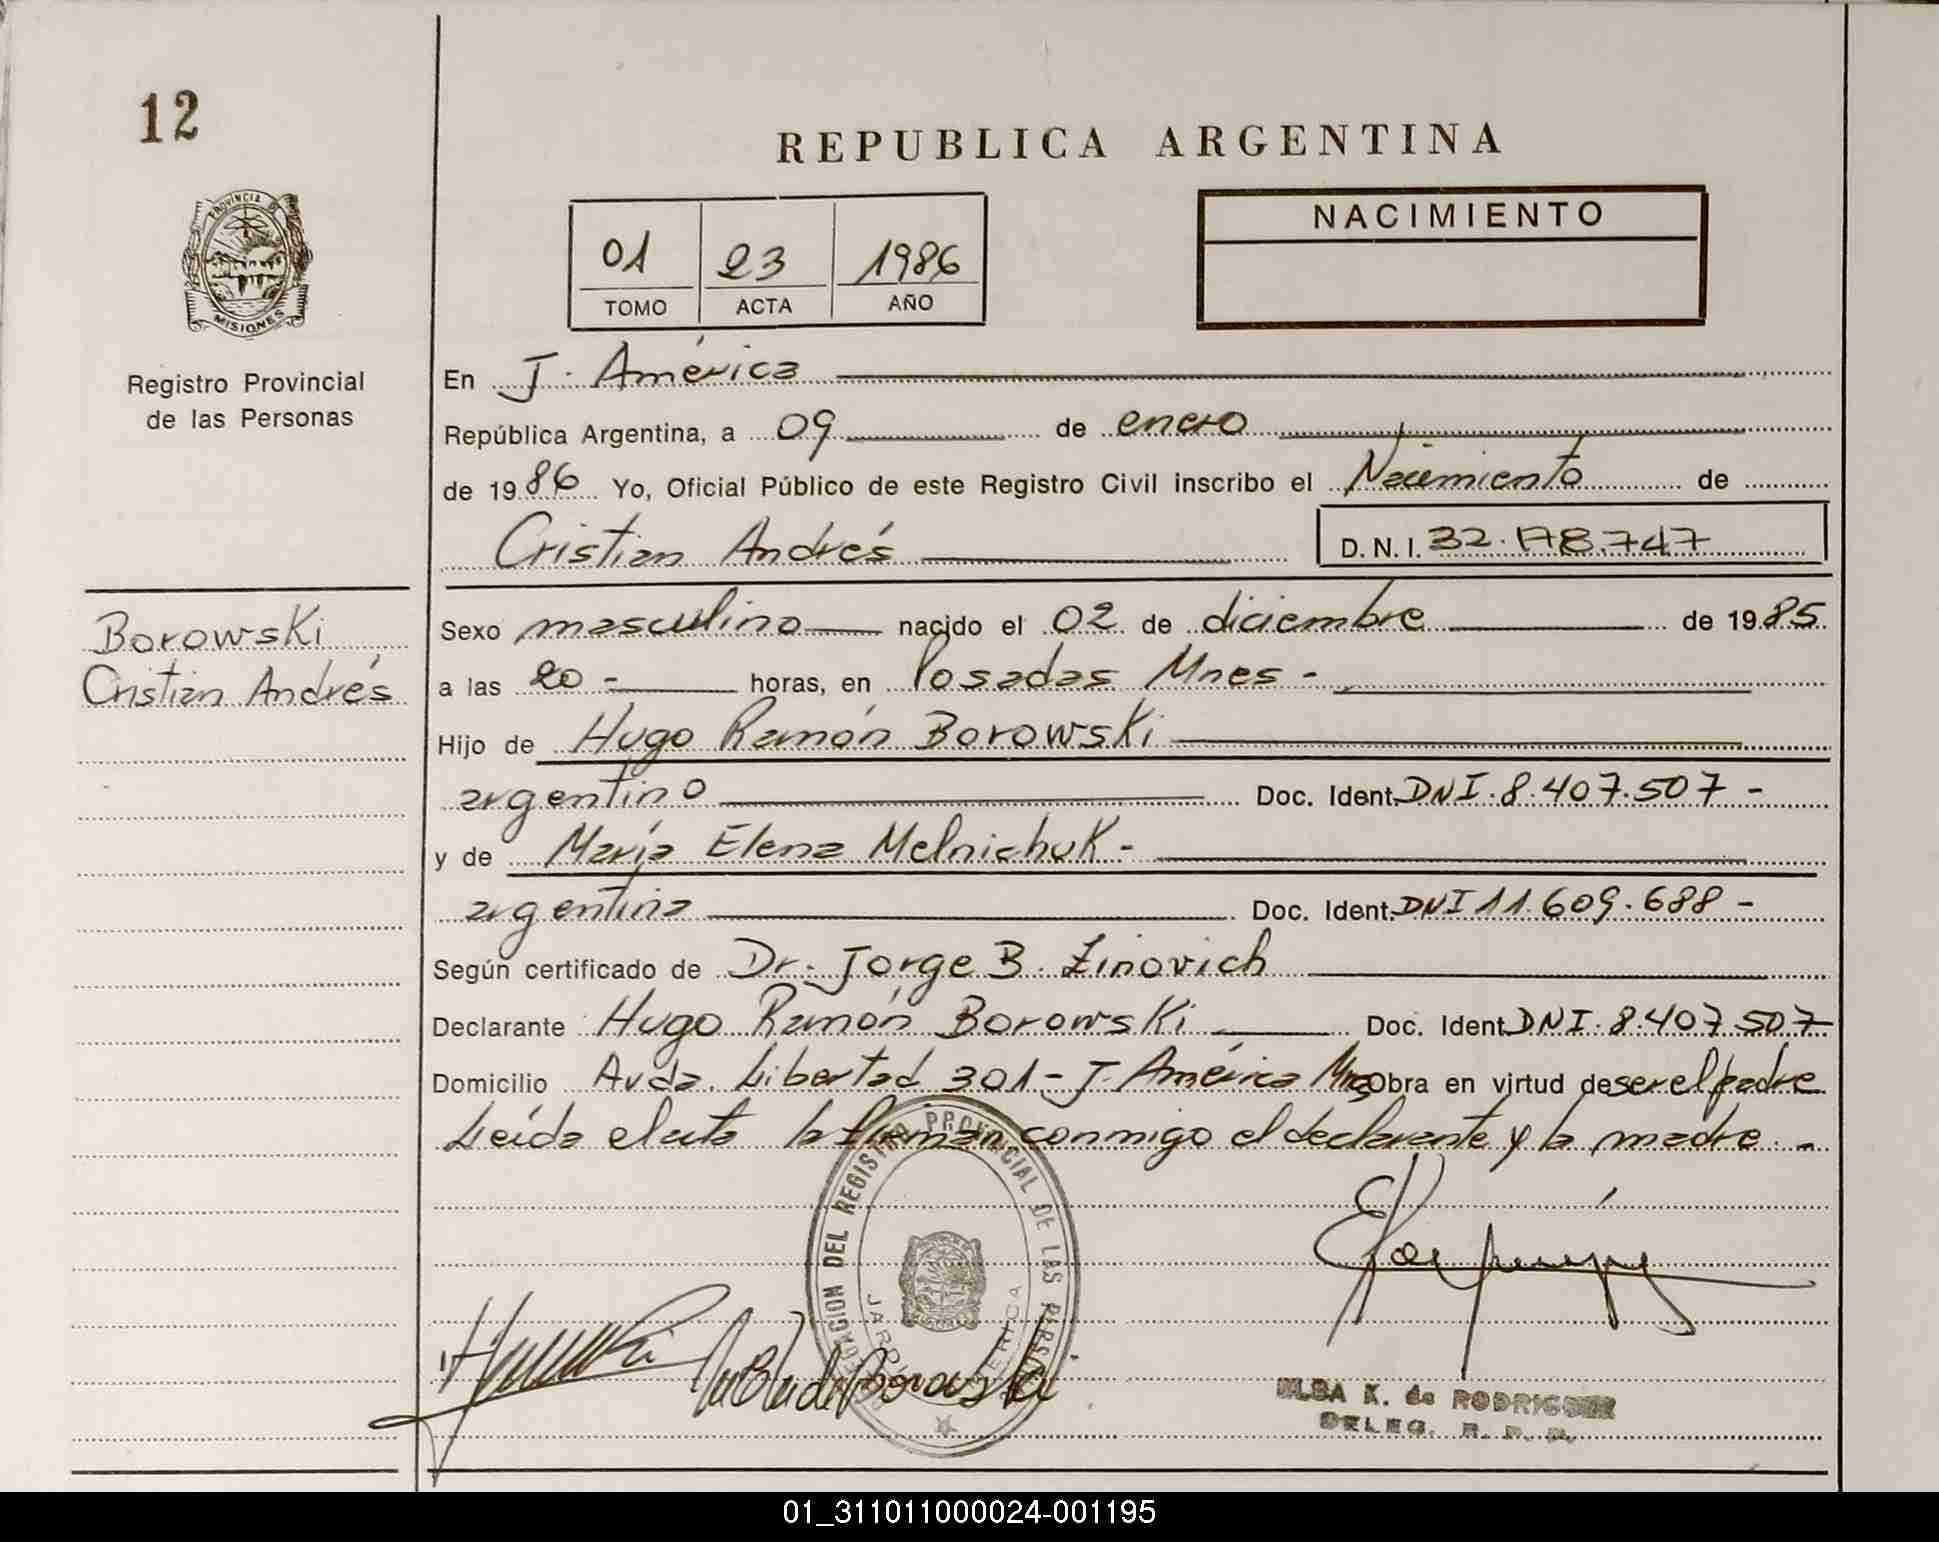 12
REPUBLICA ARGENTINA
PROVINCIA DE
MISIONES
Registro Provincial
de las Personas
01 23 1986
TOMO ACTA AÑO
NACIMIENTO
En J. América
República Argentina, a 09 de enero
de 1986 Yo, Oficial Público de este Registro Civil inscribo el Nacimiento de
Cristian Andrés D.N.I. 32.178.747
Borowski
Cristian Andrés
Sexo masculino nacido el 02 de diciembre de 1985
a las 20 - horas, en Posadas Mnes -
Hijo de Hugo Ramón Borowski
argentino Doc. Ident. DNI. 8.407.507 -
y de María Elena Melnichuk -
argentina Doc. Ident. DNI 11.609.688 -
Según certificado de Dr. Jorge B. Zinovich
Declarante Hugo Ramón Borowski Doc. Ident. DNI. 8.407.507
Domicilio Avda. Libertad 301 - J. América Mnes Obra en virtud de ser el padre
Leída el acta la firman conmigo el declarante y la madre. -
DELEGACION DEL REGISTRO PROVINCIAL DE LAS PERSONAS
JARDIN AMERICA
Borowski
ELBA K. de RODRIGUEZ
DELEG. R. P. P.
01_311011000024-001195